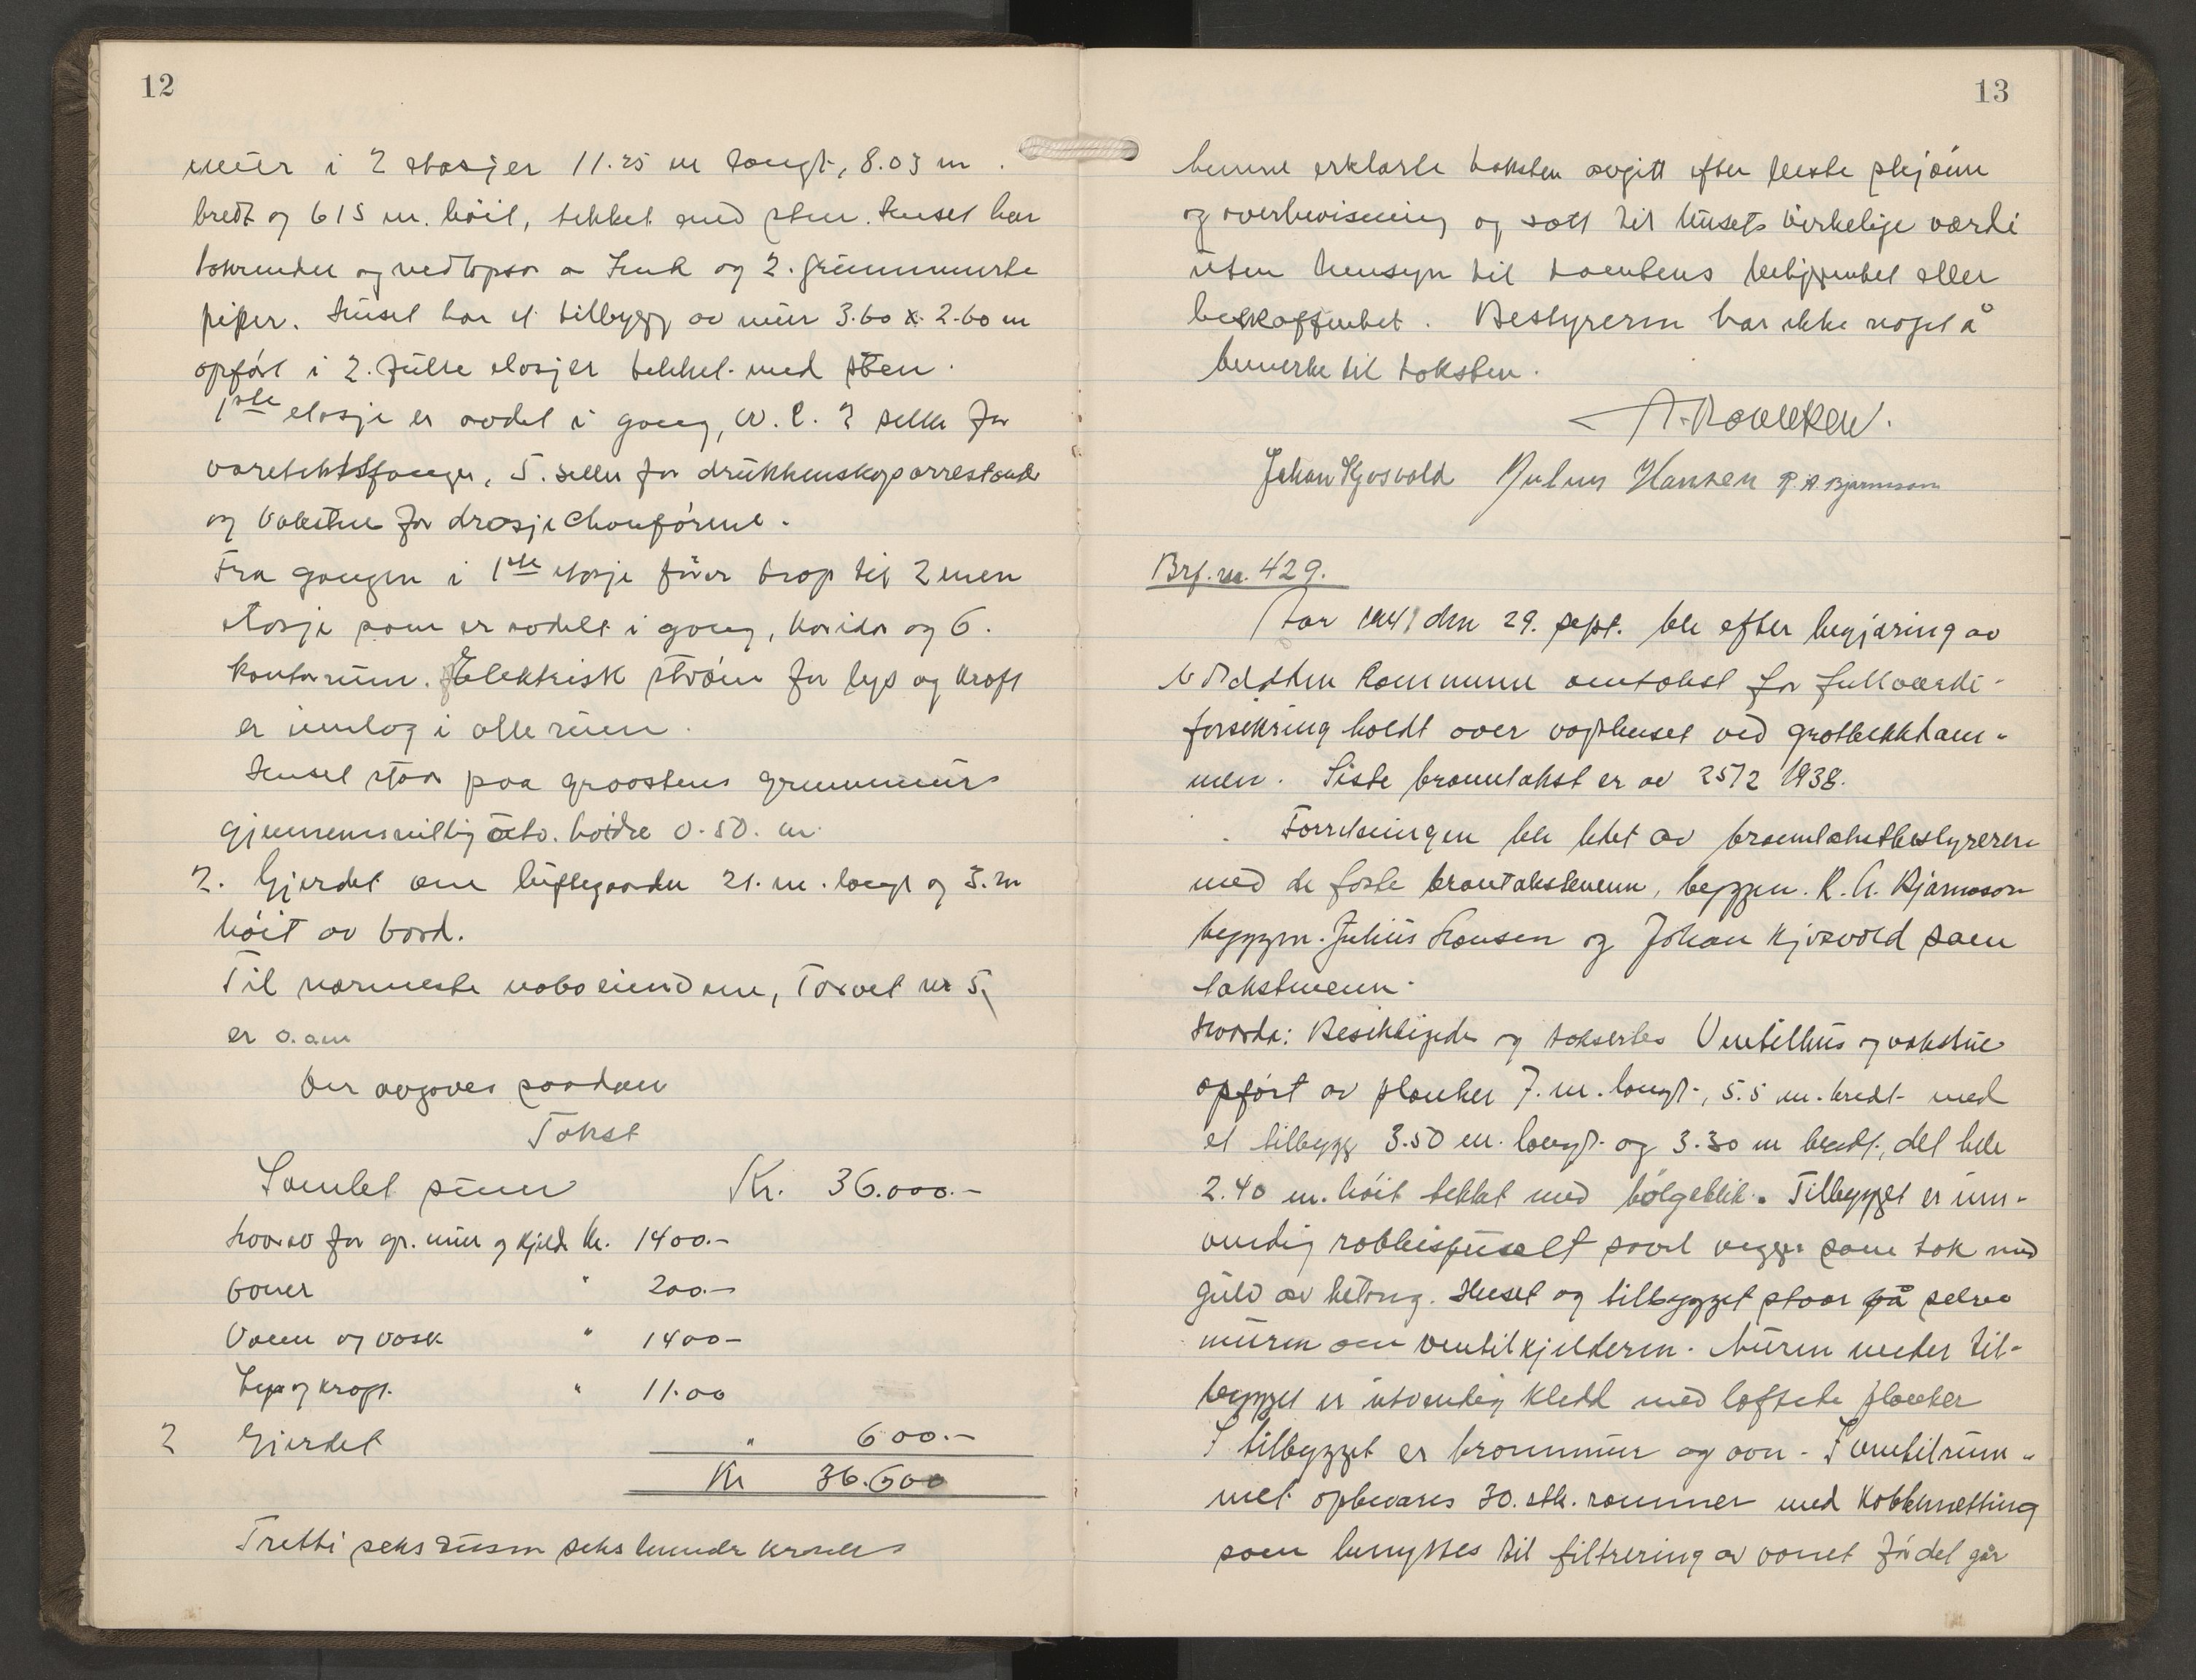 12
mur i 2 etasjer 11.25 m langt, 8.03 m
bredt og 615 m. höit, tekket med sten. Huset har
takrender og nedlöpsrör a Sink og 2. grunnmurte
piper. Huset har et tilbygg av mur 3.60 x 2.60 m
opfört i 2. fulle etasjer tekket med sten.
1ste etasje er avdelt i gang, W.C. 2 seller for
varetektsfanger, 5. seller for drukkenskapsarrestanter
og vaktstue for drosjechauförene.
Fra gangen i 1ste etasje förer trap til 2nen
etasje som er avdelt i gang, koridor og 6.
kontorrum. Elektrisk ström for lys og kraft
er innlag i alle rum.
Huset staar paa graastens grunnmur
gjennemsnittlig utv. höide 0.50. m.
2. Gjerdet om luftegaarden 21. m. langt og 3. m
höit av bord.
Til nærmeste naboeiendom, Torvet nr 5,
er 0.am
Der avgaves saadan
Takst
Samlet sum Kr. 36.000.-
hvorav for gr. mur og kjeld. Kr. 1400.-
Ovner " 200.-
Vann og vask " 1400-
Lys og kraft. " 11.00
2 Gjerdet " 600.-
Kr 36.600
Tretti seks tusen seks hundre kroner
13
henne erklærte taksten avgitt efter beste skjönn
og overbevisning og satt til husets virkelige værdi
uten hensyn til tomtens beliggenhet eller
beskaffenhet. Bestyreren har ikke noget å
bemerke til taksten.
Johan Kjosvold Julius Hansen R. A. Bjarnason
Brf. nr. 429.
Aar 1941 den 29. sept. ble efter begjæring av
Vardö kommune omtakst for fullverdi-
forsikring holdt over vakthuset ved grotbekkdam-
men. Siste branntakst er av 25/2 1938.
Forretningen ble ledet av branntakstbestyreren
med de faste branntakstmenn, byggm. R. A. Bjarnason
byggm. Julius Hansen og Johan Kjosvold som
takstmenn.
Hvorda: Besiktigedes og taksertes Ventilhus og vakstue
opfört av planker 7. m. langt, 5.5 m. bredt med
et tilbygg 3.50 m. langt og 3.30 m bredt, det hele
2.40 m. höit tekket med bölgeblik. Tilbygget er inn-
vendig rabbispusset såvel vegger som tak med
gulv av betong. Huset og tilbygget staar på selve
muren om ventilkjelderen. Muren under til-
bygget er utvendig kledd med laftede planker
I tilbygget er brannmur og ovn - I ventilrum-
met opbevares 30. stk. rammer med kobbernetting
som benyttes til filtrering av vannet för det går